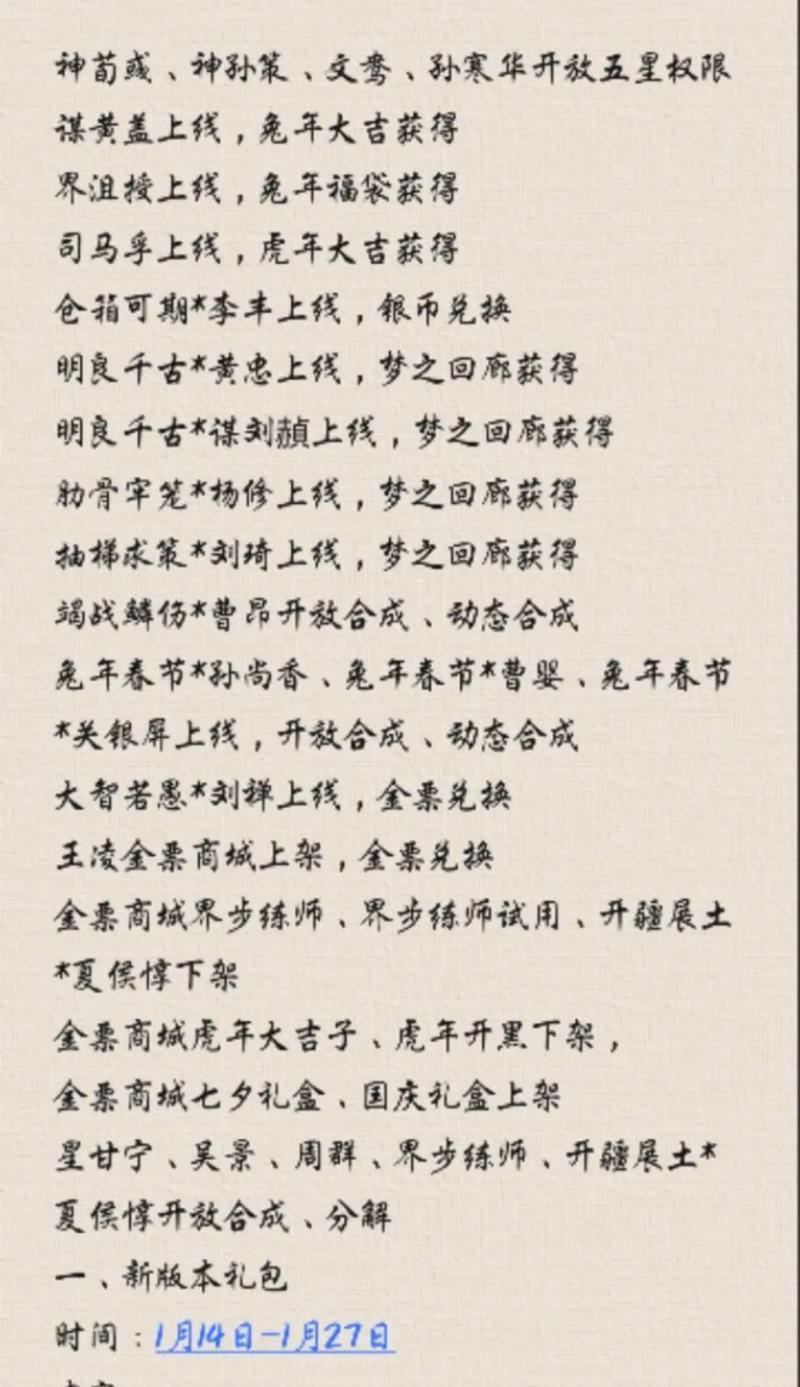 神荀彧、神孙策、文鸯、孙寒华开放五星权限
谋黄盖上线，兔年大吉获得
界沮授上线，兔年福袋获得
司马孚上线，虎年大吉获得
仓箱可期*李丰上线，银币兑换
明良千古*黄忠上线，梦之回廊获得
明良千古*谋刘赪上线，梦之回廊获得
肋骨牢笼*杨修上线，梦之回廊获得
抽梯求策*刘琦上线，梦之回廊获得
竭战鳞伤*曹昂开放合成、动态合成
兔年春节*孙尚香、兔年春节*曹婴、兔年春节
*关银屏上线，开放合成、动态合成
大智若愚*刘禅上线，金票兑换
王凌金票商城上架，金票兑换
金票商城界步练师、界步练师试用、开疆展土
*夏侯惇下架
金票商城虎年大吉子、虎年开黑下架，
金票商城七夕礼盒、国庆礼盒上架
星甘宁、吴景、周群、界步练师、开疆展土*
夏侯惇开放合成、分解
一、新版本礼包
时间：1月14日-1月27日